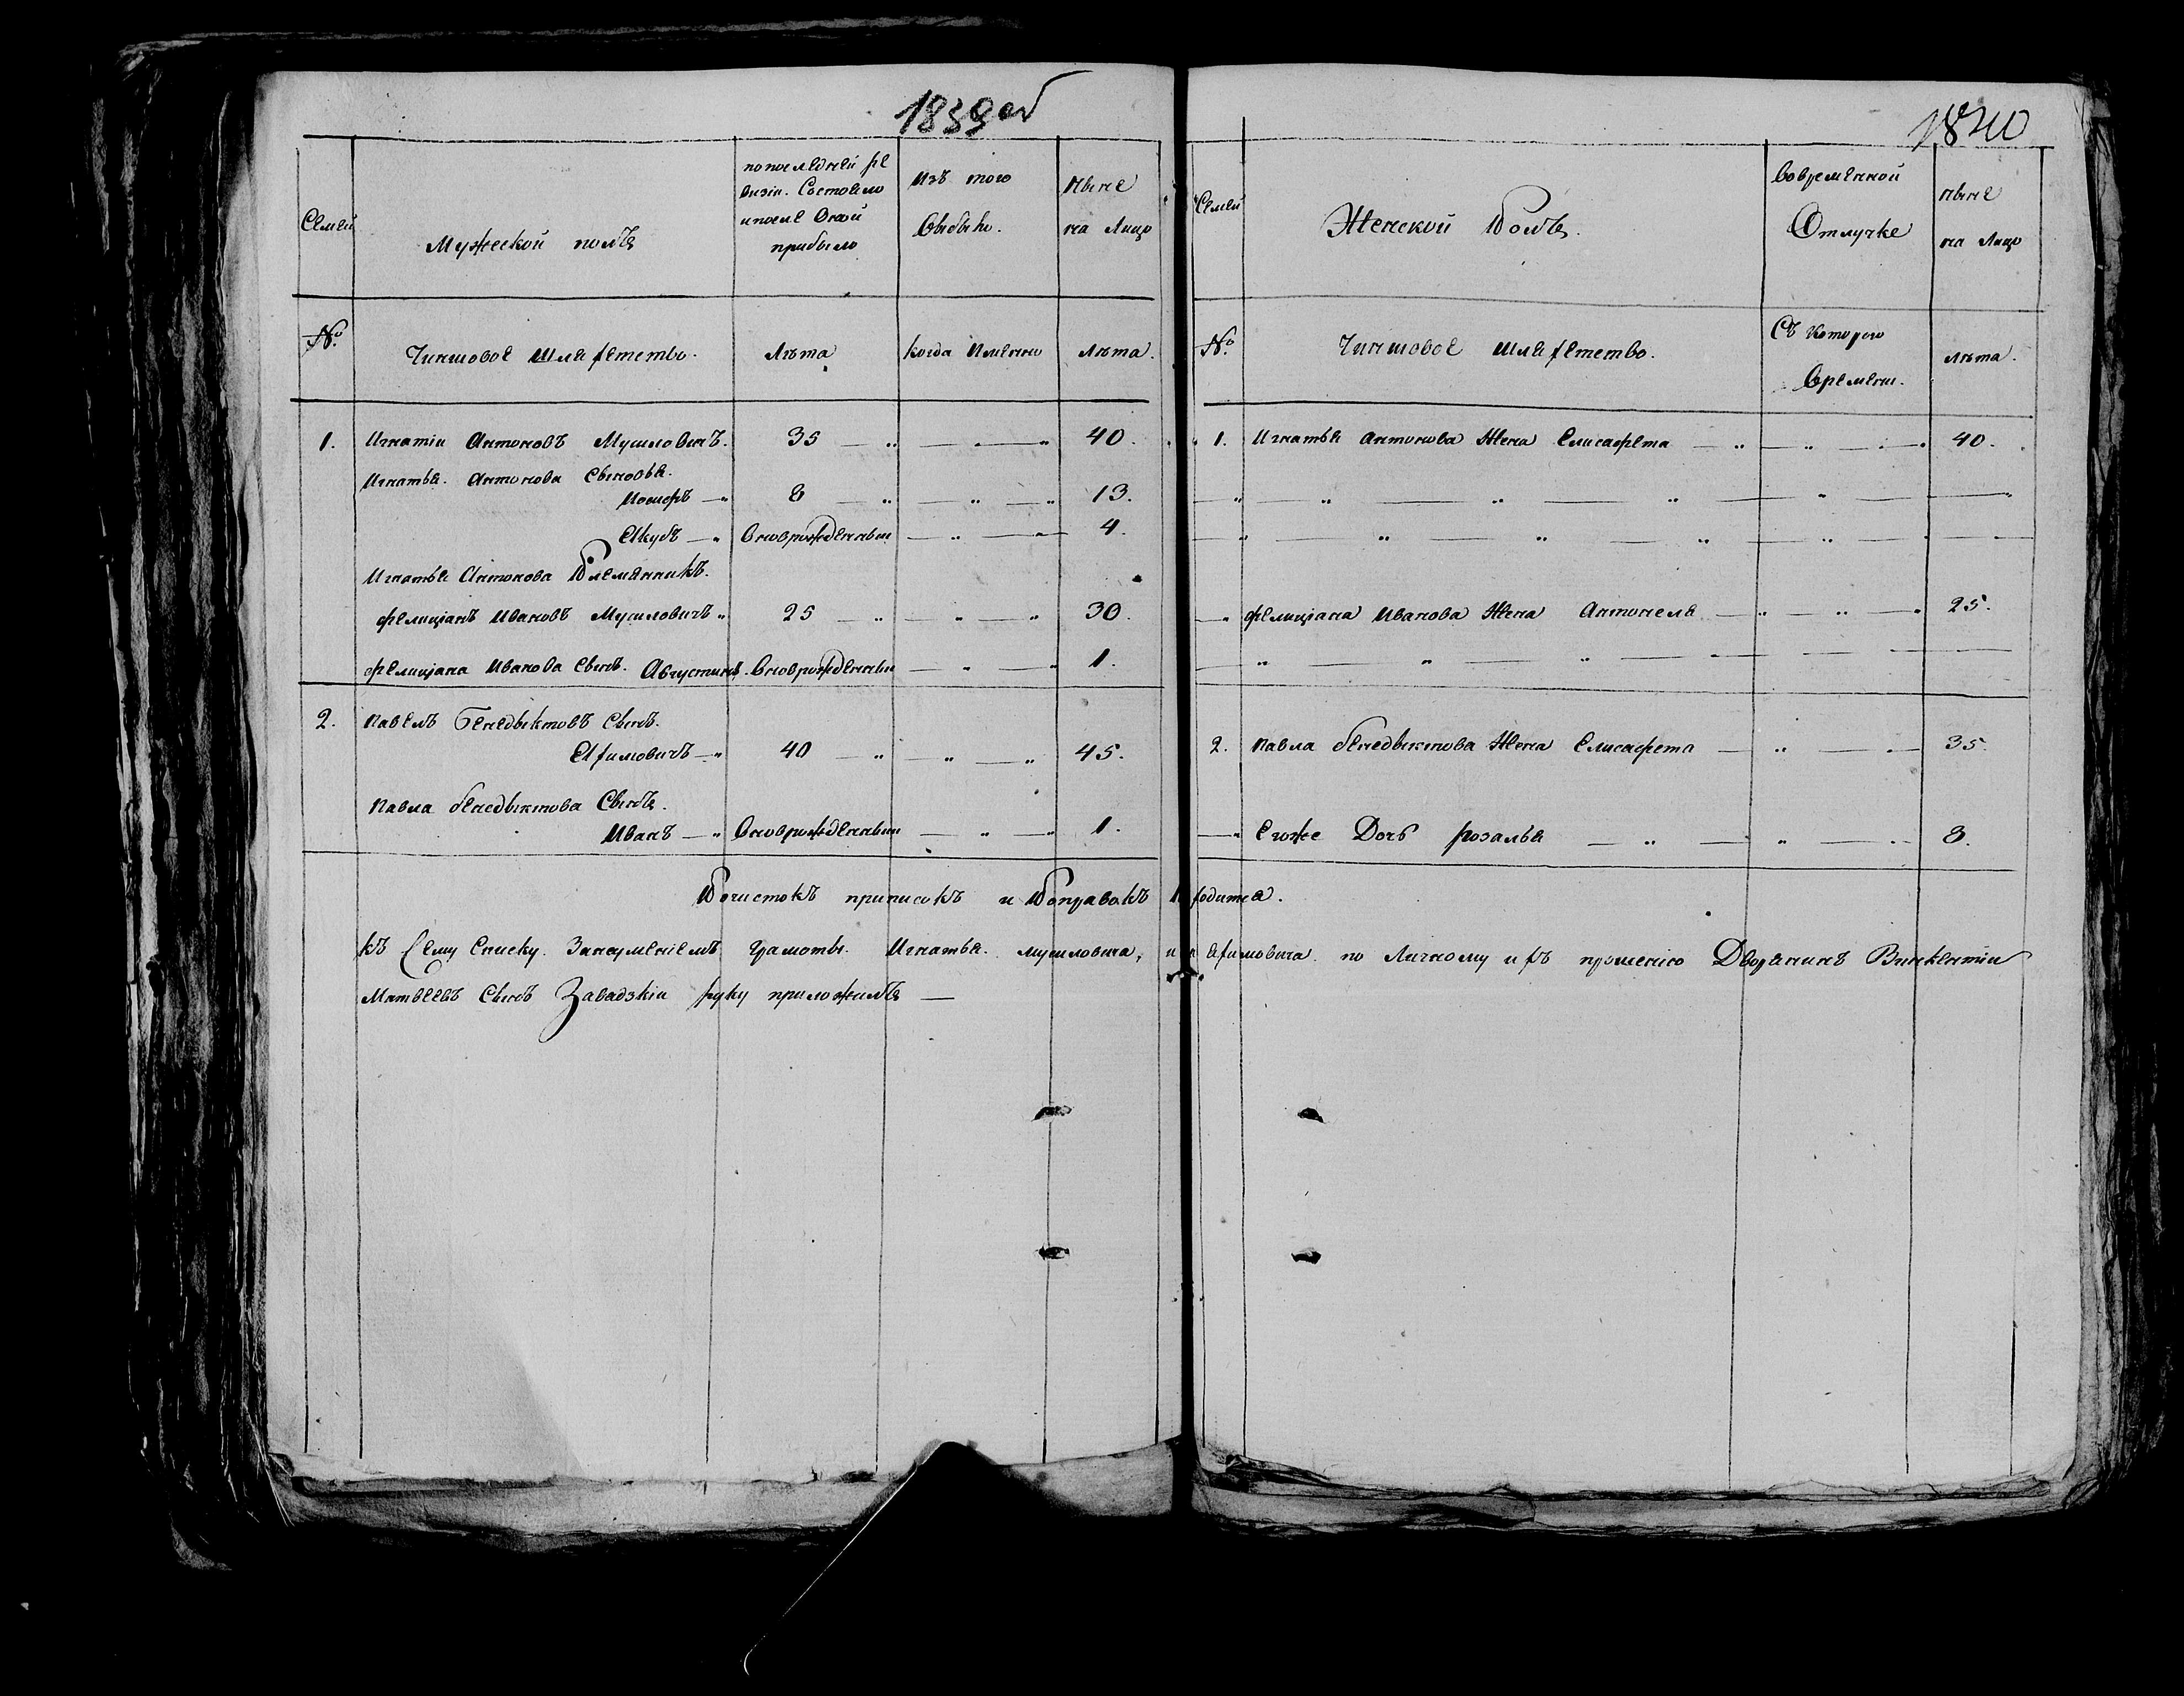 1839об
1840
Семьи
Мужеской полъ
по последней ре
визіи. Состояло
и после Оной
прибыло
Изъ того
Выбыло.
Ныне
на Лицо
№
Чиншовое шляхетство.
Лѣта
Когда Именно
Лѣта.
1. Игнатіи Антоновъ Мушловичъ. 35 — „ — „ — „ 40.
Игнатья. Антонова Сыновья.
Иосифъ — „ 8 — „ — „ — „ 13.
Якубъ — „ Вновърожденныи — „ — „ 4.
Игнатья Антонова Племянникъ.
Фелиціанъ Ивановъ Мушловичъ „ 25 — „ — „ — „ 30.
Фелиціана Иванова Сынъ. Августинъ. Вновърожденныи — „ — „ 1.
2. Павелъ Бенедыктовъ Сынъ.
Яхимовичъ — „ 40 — „ — „ — „ 45.
Павла Бенедыктова Сынъ.
Иванъ — „ Вновърожденныи — „ — „ 1.
Семьи
Женской Полъ.
Вовременной
Отлучке
Ныне
на Лицо
№
Чиншовое шляхетство.
Съ Которого
Времени.
Лѣта.
1. Игнатья Антонова Жена Елисафета — „ — „ — „ 40.
— „ — „ — „ — „ — „ — „
— „ — „ — „ — „ — „ —
— „ Фелиціана Иванова Жена Антонеля — „ — „ — „ 25.
— „ — „ — „ — „ — —
2. Павла Бенедыктова Жена Елисафета — „ — „ — 35.
— „ Егоже Дочь Розалья — „ — „ — „ 8.
Почистокъ приписокъ и Поправокъ родится.
Къ Сему Списку. Занеуменіемъ грамоты. Игнатья. Мушловича, и Яхимовича. по Личному ихъ прошенію Дворянинъ Викентіи
Матвеевъ Сынъ Завадзкіи руку приложилъ —